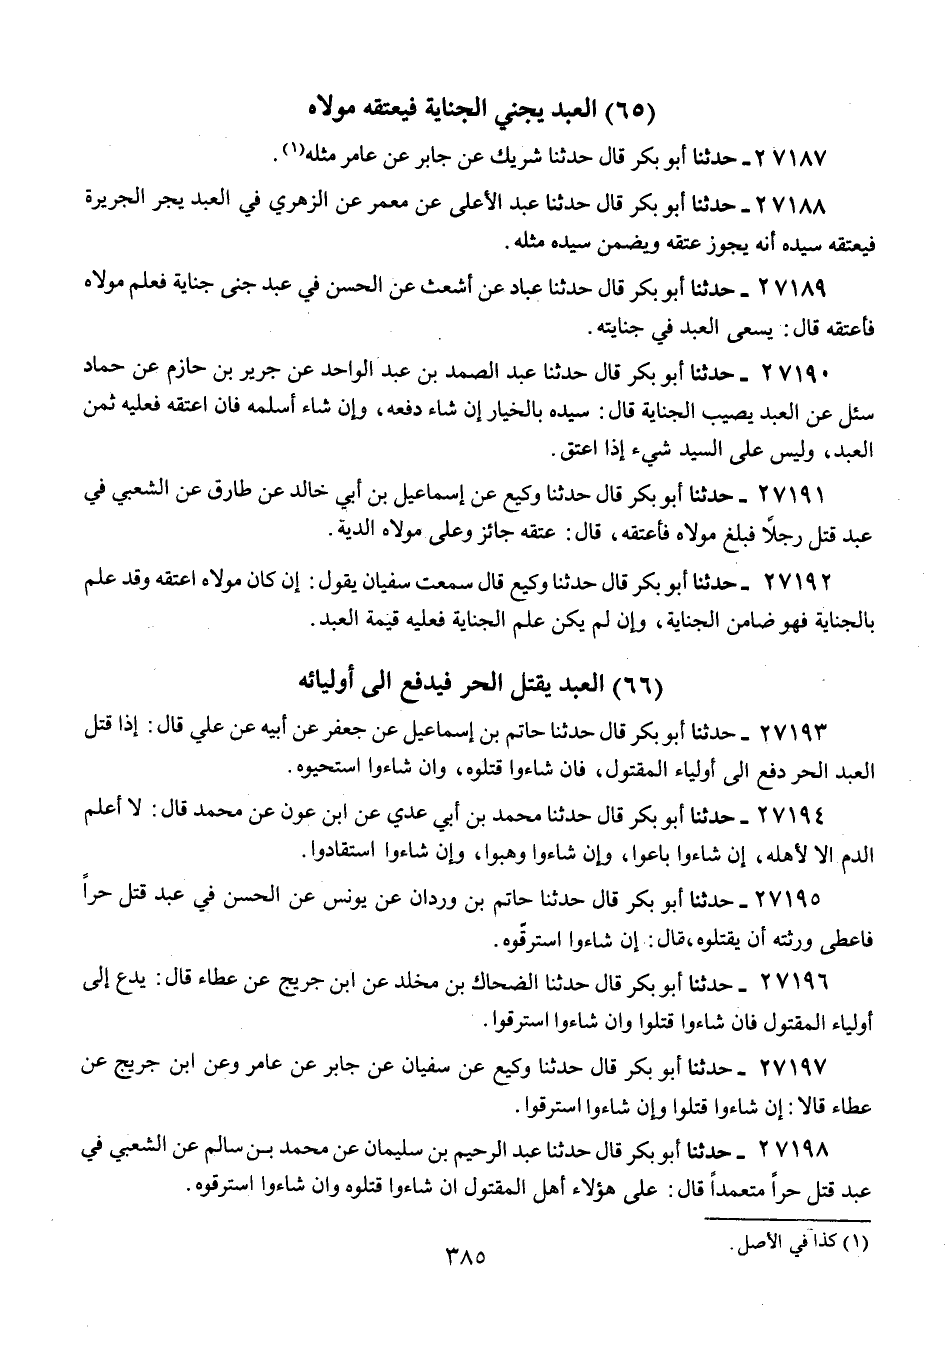 (٦٥) العبد يجني الجناية فيعتقه مولاه
٢٧١٨٧ ـ حدثنا أبو بكر قال حدثنا شريك عن جابر عن عامر مثله(١).
٢٧١٨٨ ـ حدثنا أبو بكر قال حدثنا عبد الأعلى عن معمر عن الزهري في العبد يجر الجريرة
فيعتقه سيده أنه يجوز عتقه ويضمن سيده مثله.
٢٧١٨٩ ـ حدثنا أبو بكر قال حدثنا عباد عن أشعث عن الحسن في عبد جنى جناية فعلم مولاه
فأعتقه قال: يسعى العبد في جنايته.
٢٧١٩٠ ـ حدثنا أبو بكر قال حدثنا عبد الصمد بن عبد الواحد عن جرير بن حازم عن حماد
سئل عن العبد يصيب الجناية قال: سيده بالخيار إن شاء دفعه، وإن شاء أسلمه فان اعتقه فعليه ثمن
العبد، وليس على السيد شيء إذا اعتق.
٢٧١٩١ ـ حدثنا أبو بكر قال حدثنا وكيع عن إسماعيل بن أبي خالد عن طارق عن الشعبي في
عبد قتل رجلاً فبلغ مولاه فأعتقه، قال: عتقه جائز وعلى مولاه الدية.
٢٧١٩٢ ـ حدثنا أبو بكر قال حدثنا وكيع قال سمعت سفيان يقول: إن كان مولاه اعتقه وقد علم
بالجناية فهو ضامن الجناية، وإن لم يكن علم الجناية فعليه قيمة العبد.
(٦٦) العبد يقتل الحر فيدفع الى أوليائه
٢٧١٩٣ ـ حدثنا أبو بكر قال حدثنا حاتم بن إسماعيل عن جعفر عن أبيه عن علي قال: إذا قتل
العبد الحر دفع الى أولياء المقتول، فان شاءوا قتلوه، وان شاءوا استحيوه.
٢٧١٩٤ ـ حدثنا أبو بكر قال حدثنا محمد بن أبي عدي عن ابن عون عن محمد قال: لا أعلم
الدم الا لأهله، إن شاءوا باعوا، وإن شاءوا وهبوا، وإن شاءوا استقادوا.
٢٧١٩٥ ـ حدثنا أبو بكر قال حدثنا حاتم بن وردان عن يونس عن الحسن في عبد قتل حراً
فاعطى ورثته أن يقتلوه،قال: إن شاءوا استرقّوه.
٢٧١٩٦ ـ حدثنا أبو بكر قال حدثنا الضحاك بن مخلد عن ابن جريج عن عطاء قال: يدع إلى
أولياء المقتول فان شاءوا قتلوا وان شاءوا استرقوا.
٢٧١٩٧ ـ حدثنا أبو بكر قال حدثنا وكيع عن سفيان عن جابر عن عامر وعن ابن جريج عن
عطاء قالا: إن شاءوا قتلوا وإن شاءوا استرقوا.
٢٧١٩٨ ـ حدثنا أبو بكر قال حدثنا عبد الرحيم بن سليمان عن محمد بـن سالم عن الشعبي في
عبد قتل حراً متعمداً قال: على هؤلاء أهل المقتول ان شاءوا قتلوه وان شاءوا استرقوه.
(١) كذا في الأصل.
٣٨٥